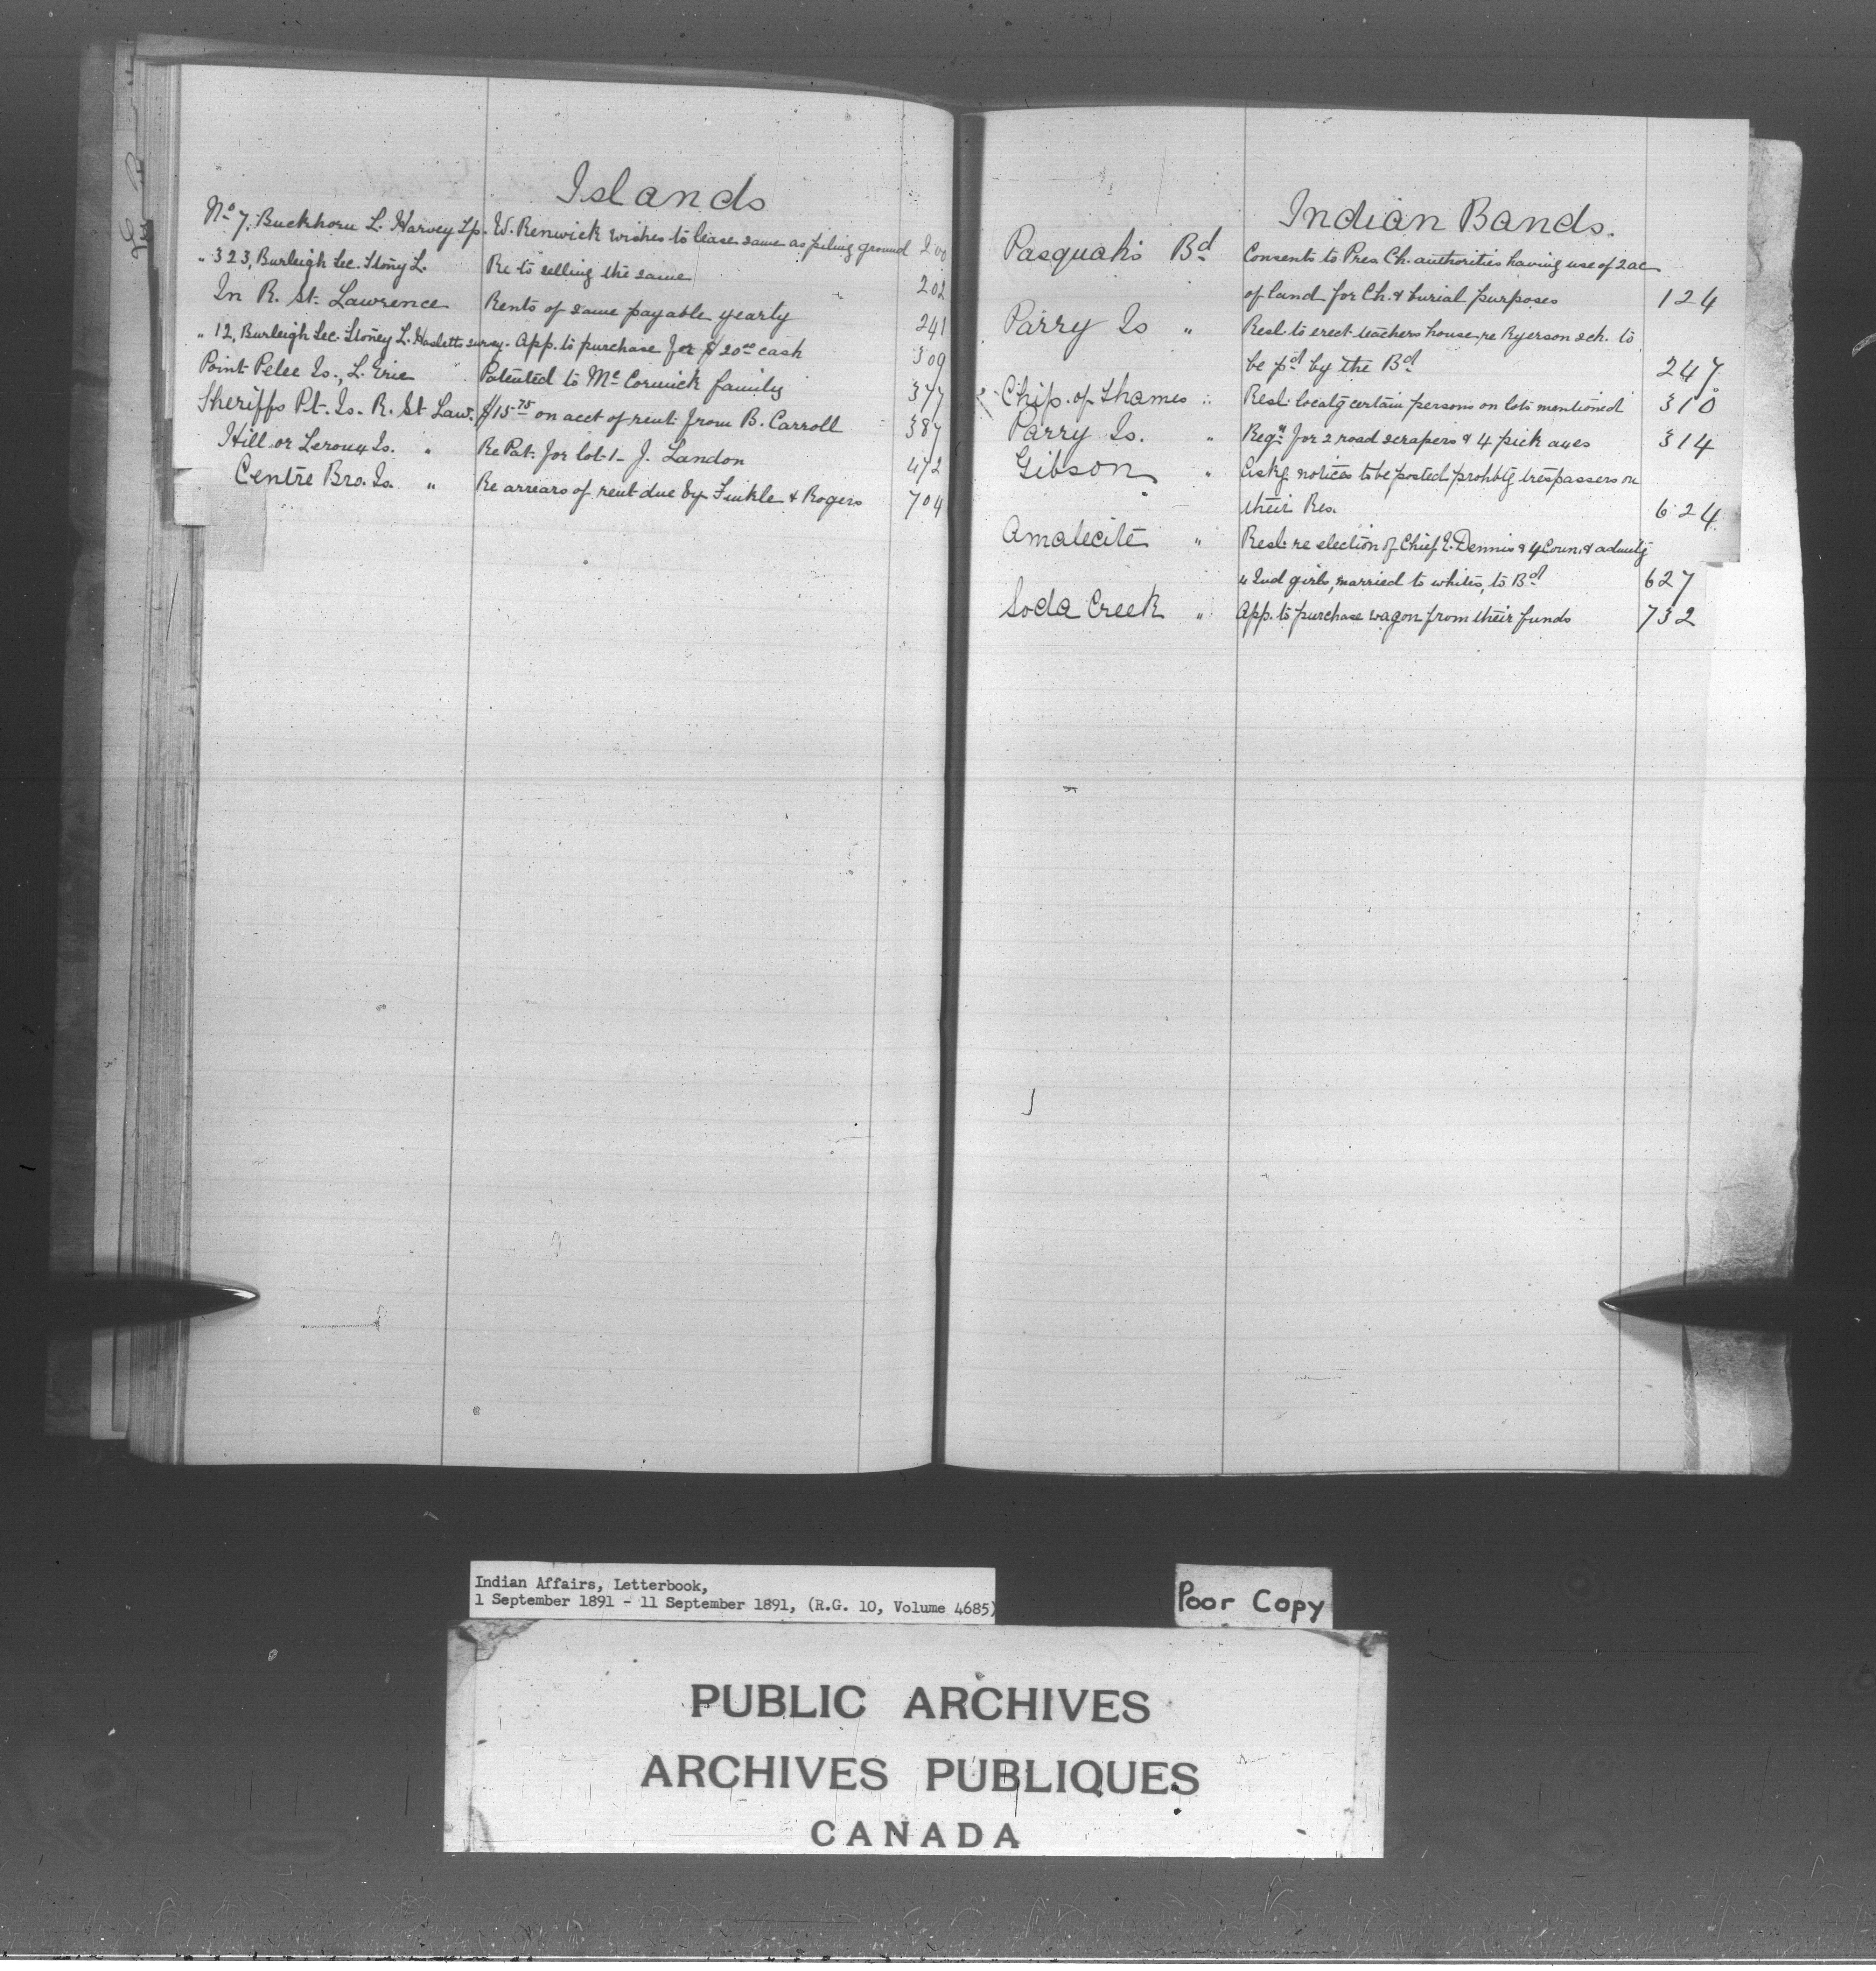 Islands
No 7, Buckhorn L. Harvey Tp. W. Renwick wishes to lease same as piling ground 200
" 323, Burleigh Sec. Stony L. Re to selling the same 202
In R. St. Lawrence Rents of same payable yearly 241
" 12, Burleigh Sec. Stoney L. Hasletts survey. App. to purchase for $20.00 cash 309
Point Pelee Is., L. Erie Patented to McCormick family 377
Sheriffs Pt. Is. R. St Law. $15.75 on acct of rent from B. Carroll 387
Hill or Leroux Is. " Re Pat. for lot 1 - J. Landon 472
Centre Bro. Is. " Re arrears of rent due by Finkle & Rogers 704
Indian Bands.
Pasquah's Bd Consents to Pres. Ch. authorities having use of 2 ac
of land for Ch. & burial purposes 124
Parry Is " Resl. to erect teachers house re Ryerson sch. to
be pd by the Bd 247
Chip. of Thames " Resl. locatg certain persons on lots mentioned 310
Parry Is. " Reqn for 2 road scrapers & 4 pick axes 314
Gibson " Askg notices to be posted prohbtg trespassers on
their Res. 624
Amalecite " Resl. re election of Chief E. Dennis & 4 Coun. & admittg
4 Ind girls, married to whites, to Bd 627
Soda Creek " App. to purchase wagon from their funds 732
Indian Affairs, Letterbook,
1 September 1891 - 11 September 1891, (R.G. 10, Volume 4685)
Poor Copy
PUBLIC ARCHIVES
ARCHIVES PUBLIQUES
CANADA